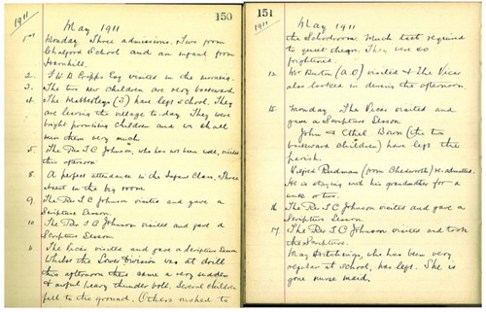 150
1911
May 1911
1st Monday Three admissions. Two from
Chalford School and an infant from
2. visited in the morning.
3. The two new children are very backward.
4. The (3) have left school. They
are leaving the village to-day. They were
bright promising children and we shall
miss them very much.
5. The Rev. T C Johnson, who has not been well, visited
this afternoon
8. A perfect attendance in the Infant Class. Three
absent in the big room
9. The Rev. T C Johnson visited and gave a
Scripture Lesson.
10. The Rev. T C Johnson visited and gave a
Scripture Lesson
11. The Vicar visited and gave a Scripture Lesson
Whilst the Lower Division was at drill
this afternoon there came a very sudden
& awful heavy thunder bolt. Several children
fell to the ground. Others rushed to
151
1911
May 1911
the Schoolroom. Much tact required
to quiet them. They were so
frightened.
12. Mr (A.O) visited & The Vicar
also looked in during the afternoon.
15. Monday The Vicar visited and
gave a Scripture Lesson
John & Ethel (the two
backward children) have left the
parish.
(from Chedworth) re-admitted.
He is staying with his grandfather for a
week or two.
16. The Rev. T C Johnson visited and gave a
Scripture Lesson
17. The Rev. T C Johnson visited and took
the Scripture.
May Hutchings, who has been very
regular at school, has left. She is
gone nurse maid.